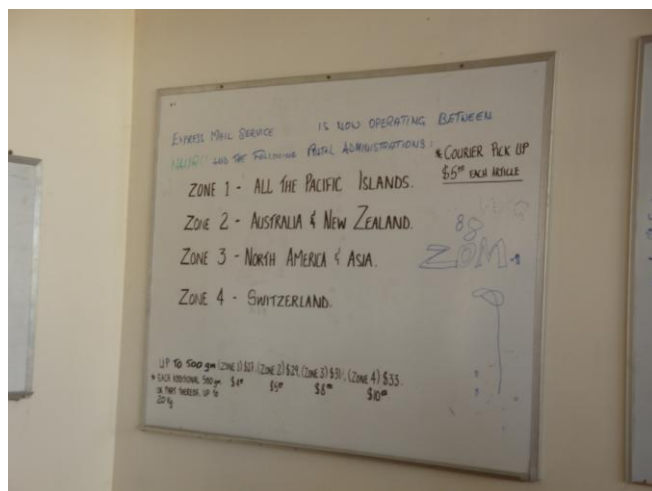 EXPRESS MAIL SERVICE IS NOW OPERATING BETWEEN
NAURU AND THE FOLLOWING POSTAL ADMINISTRATIONS:
* COURIER PICK UP
$5.00 EACH ARTICLE
ZONE 1 - ALL THE PACIFIC ISLANDS.
ZONE 2 - AUSTRALIA & NEW ZEALAND.
ZONE 3 - NORTH AMERICA & ASIA.
ZONE 4 - SWITZERLAND.
ZOM
UP TO 500 gm (ZONE 1) $27, (ZONE 2) $29, (ZONE 3) $31, (ZONE 4) $33.
* EACH ADDITIONAL 500 gm $4.00 $5.00 $8.00 $10.00
OR PART THEREOF, UP TO
20 Kg